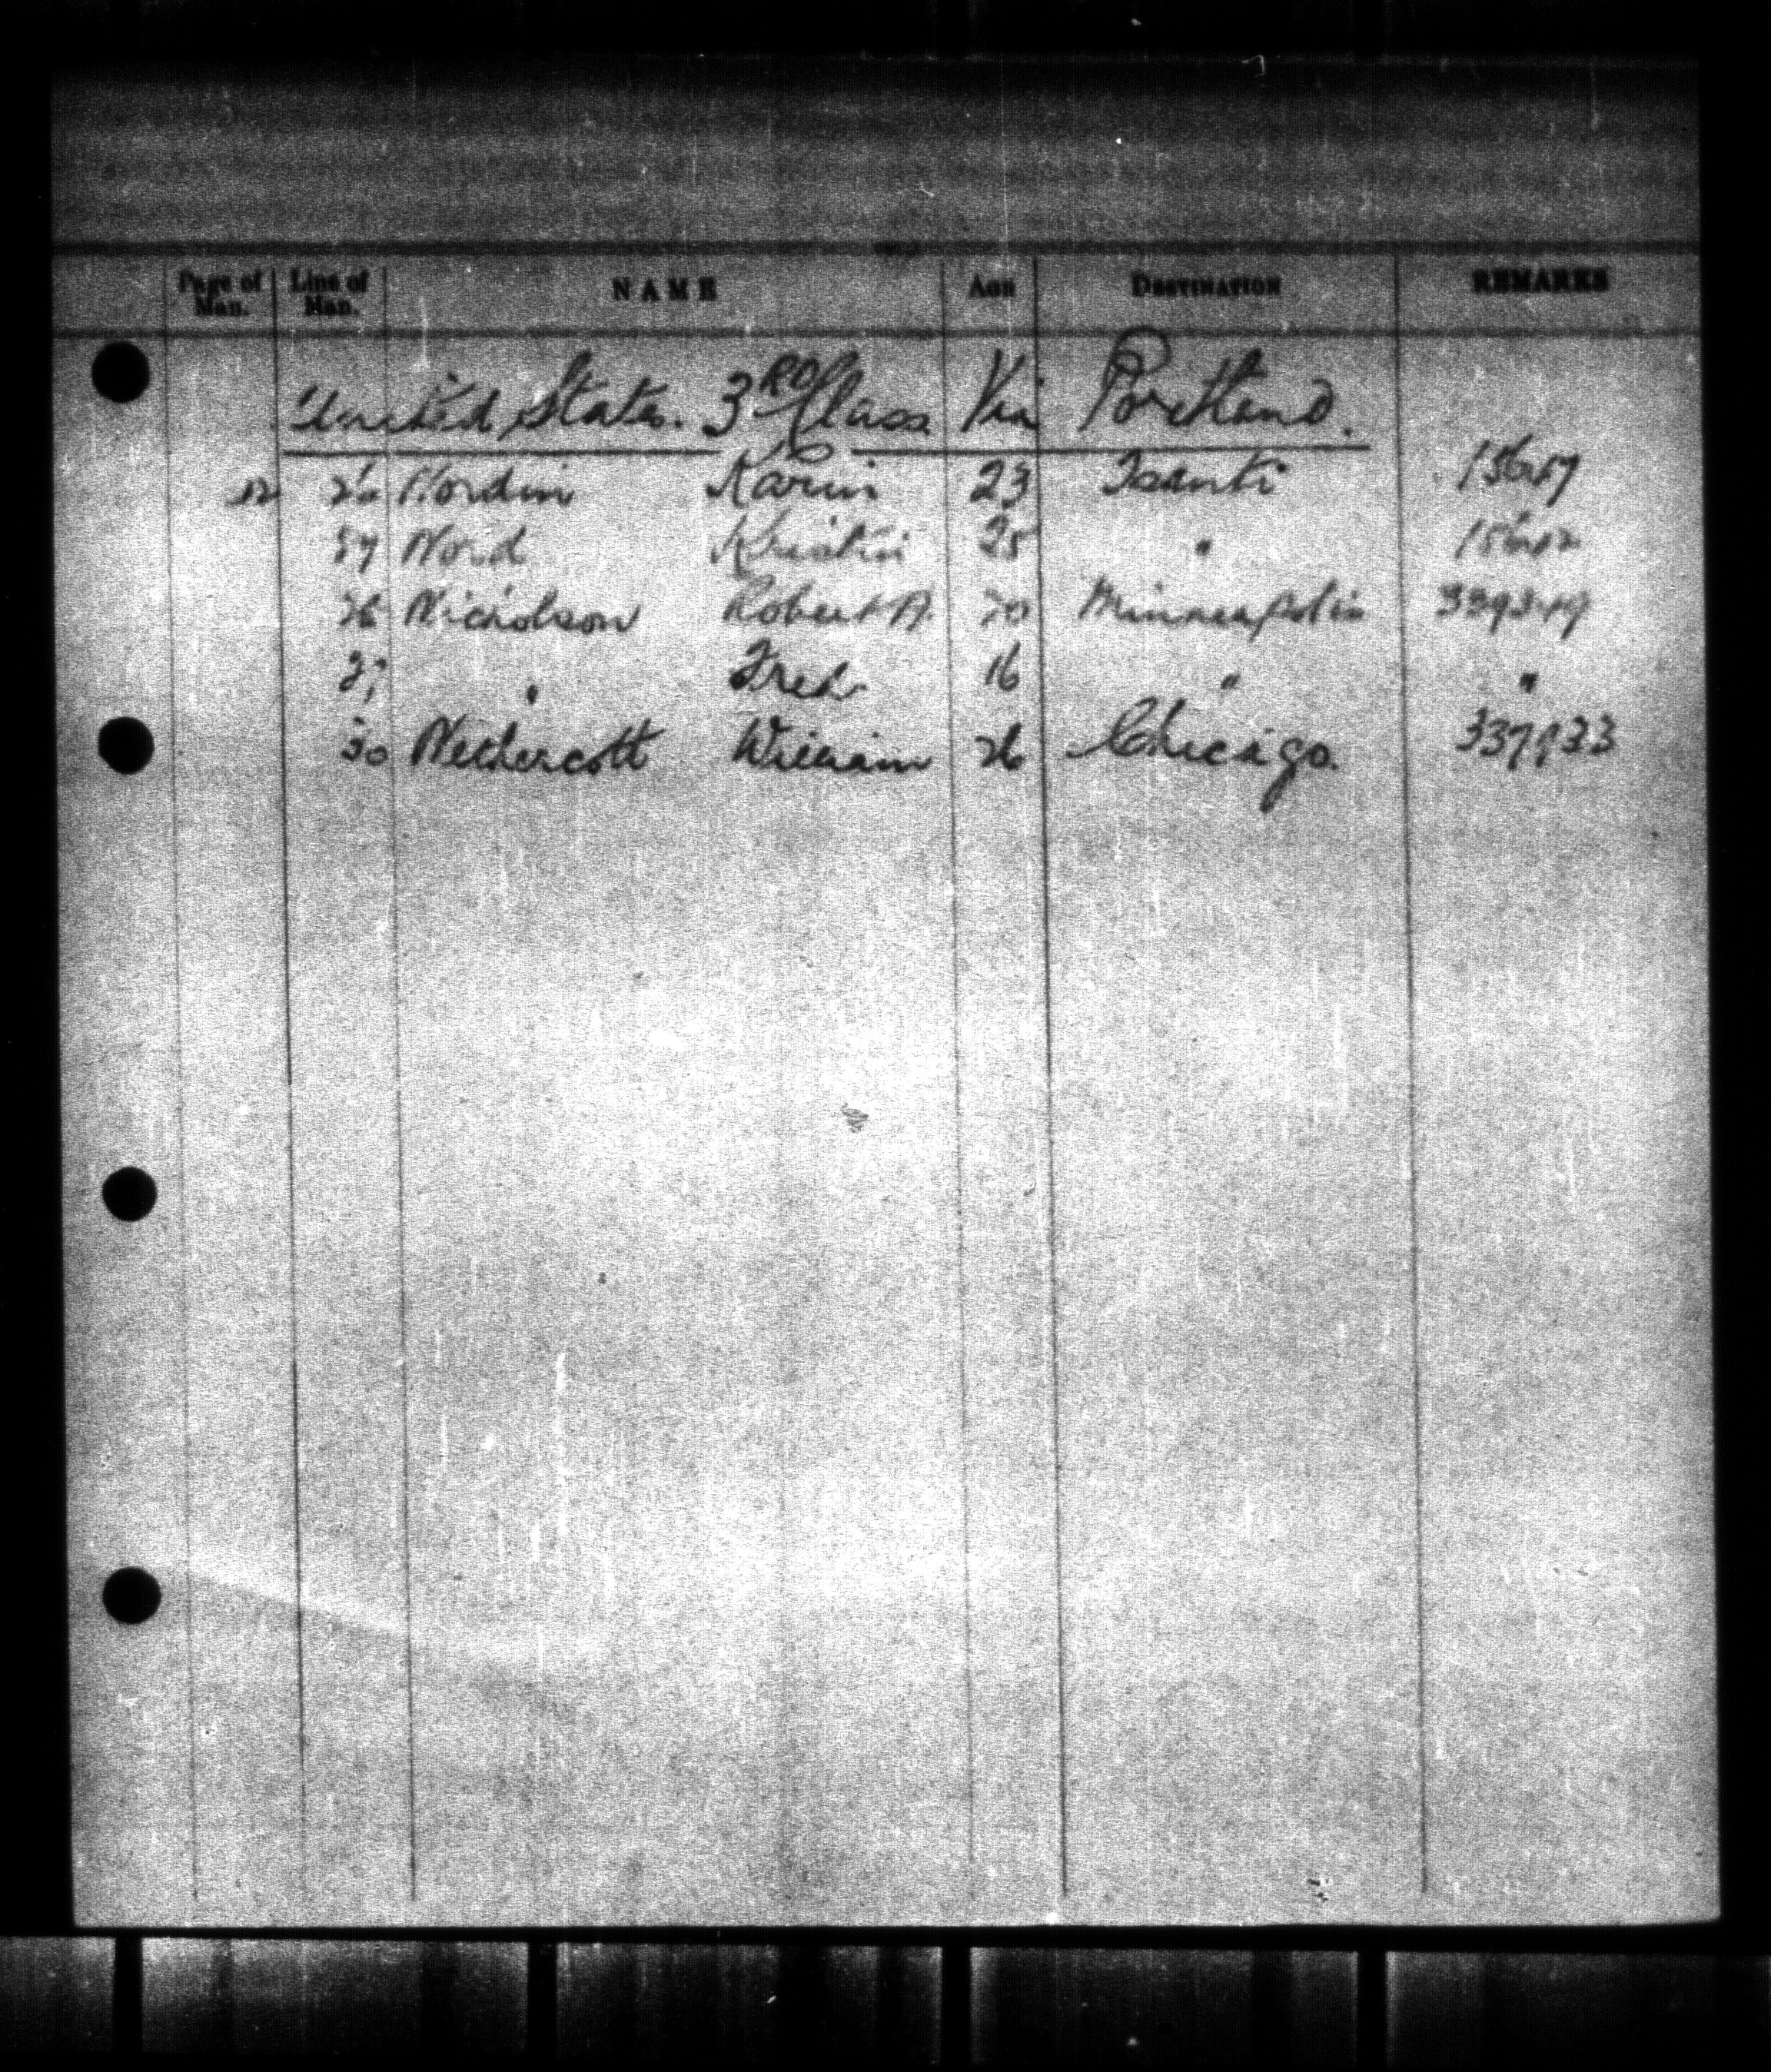 Page of Man. Line of Man. NAME AGE DESTINATION REMARKS
United States. 3RD Class Via Portland.
Nordin Karin 23 Isanti
Nord Kristin 25 "
26 Nicholson Robert A. 20 Minneapolis
27 " Fred 16 " "
30 Nethercott William 26 Chicago.